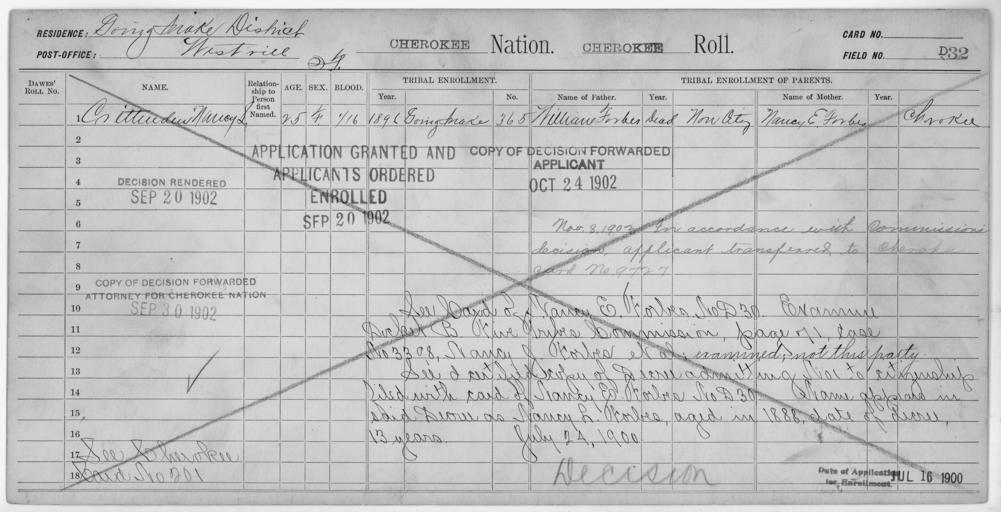 RESIDENCE: Going Snake District
POST-OFFICE: Westville I.T.
CHEROKEE Nation. CHEROKEE Roll.
CARD NO.
FIELD NO. D32
DAWES' ROLL NO. NAME. Relationship to Person first Named. AGE. SEX. BLOOD. TRIBAL ENROLLMENT. Year. County. No. TRIBAL ENROLLMENT OF PARENTS. Name of Father. Year. County. Name of Mother. Year. County.
1 Crittenden Nancy L. 25 F 1/16 1896 Going Snake 365 William Forbes Dead Non Citz Nancy E. Forbes Cherokee
2
3
4
5
6
7
8
9
10
11
12
13
14
15
16
17
18
APPLICATION GRANTED AND
APPLICANTS ORDERED
ENROLLED
SEP 20 1902
COPY OF DECISION FORWARDED
APPLICANT
OCT 24 1902
DECISION RENDERED
SEP 20 1902
Nov. 8, 1902 In accordance with Commission's
decision, applicant transferred to Cherokee
card No 9727
COPY OF DECISION FORWARDED
ATTORNEY FOR CHEROKEE NATION
SEP 30 1902
See Card of Nancy E. Forbes No D 30 Examine
Docket B Five Tribes Commission, page 071 Case
No 3308, Nancy J. Forbes et al: examined; not this party
See certified copy of Decree admitting No 1 to citizenship
filed with card of Nancy E. Forbes No D 30 Name appears in
said Decree as Nancy L. Forbes, aged in 1888, date of decree,
13 years. July 24, 1900
See Cherokee
Card No 201
Decision
Date of Application for Enrollment. JUL 16 1900